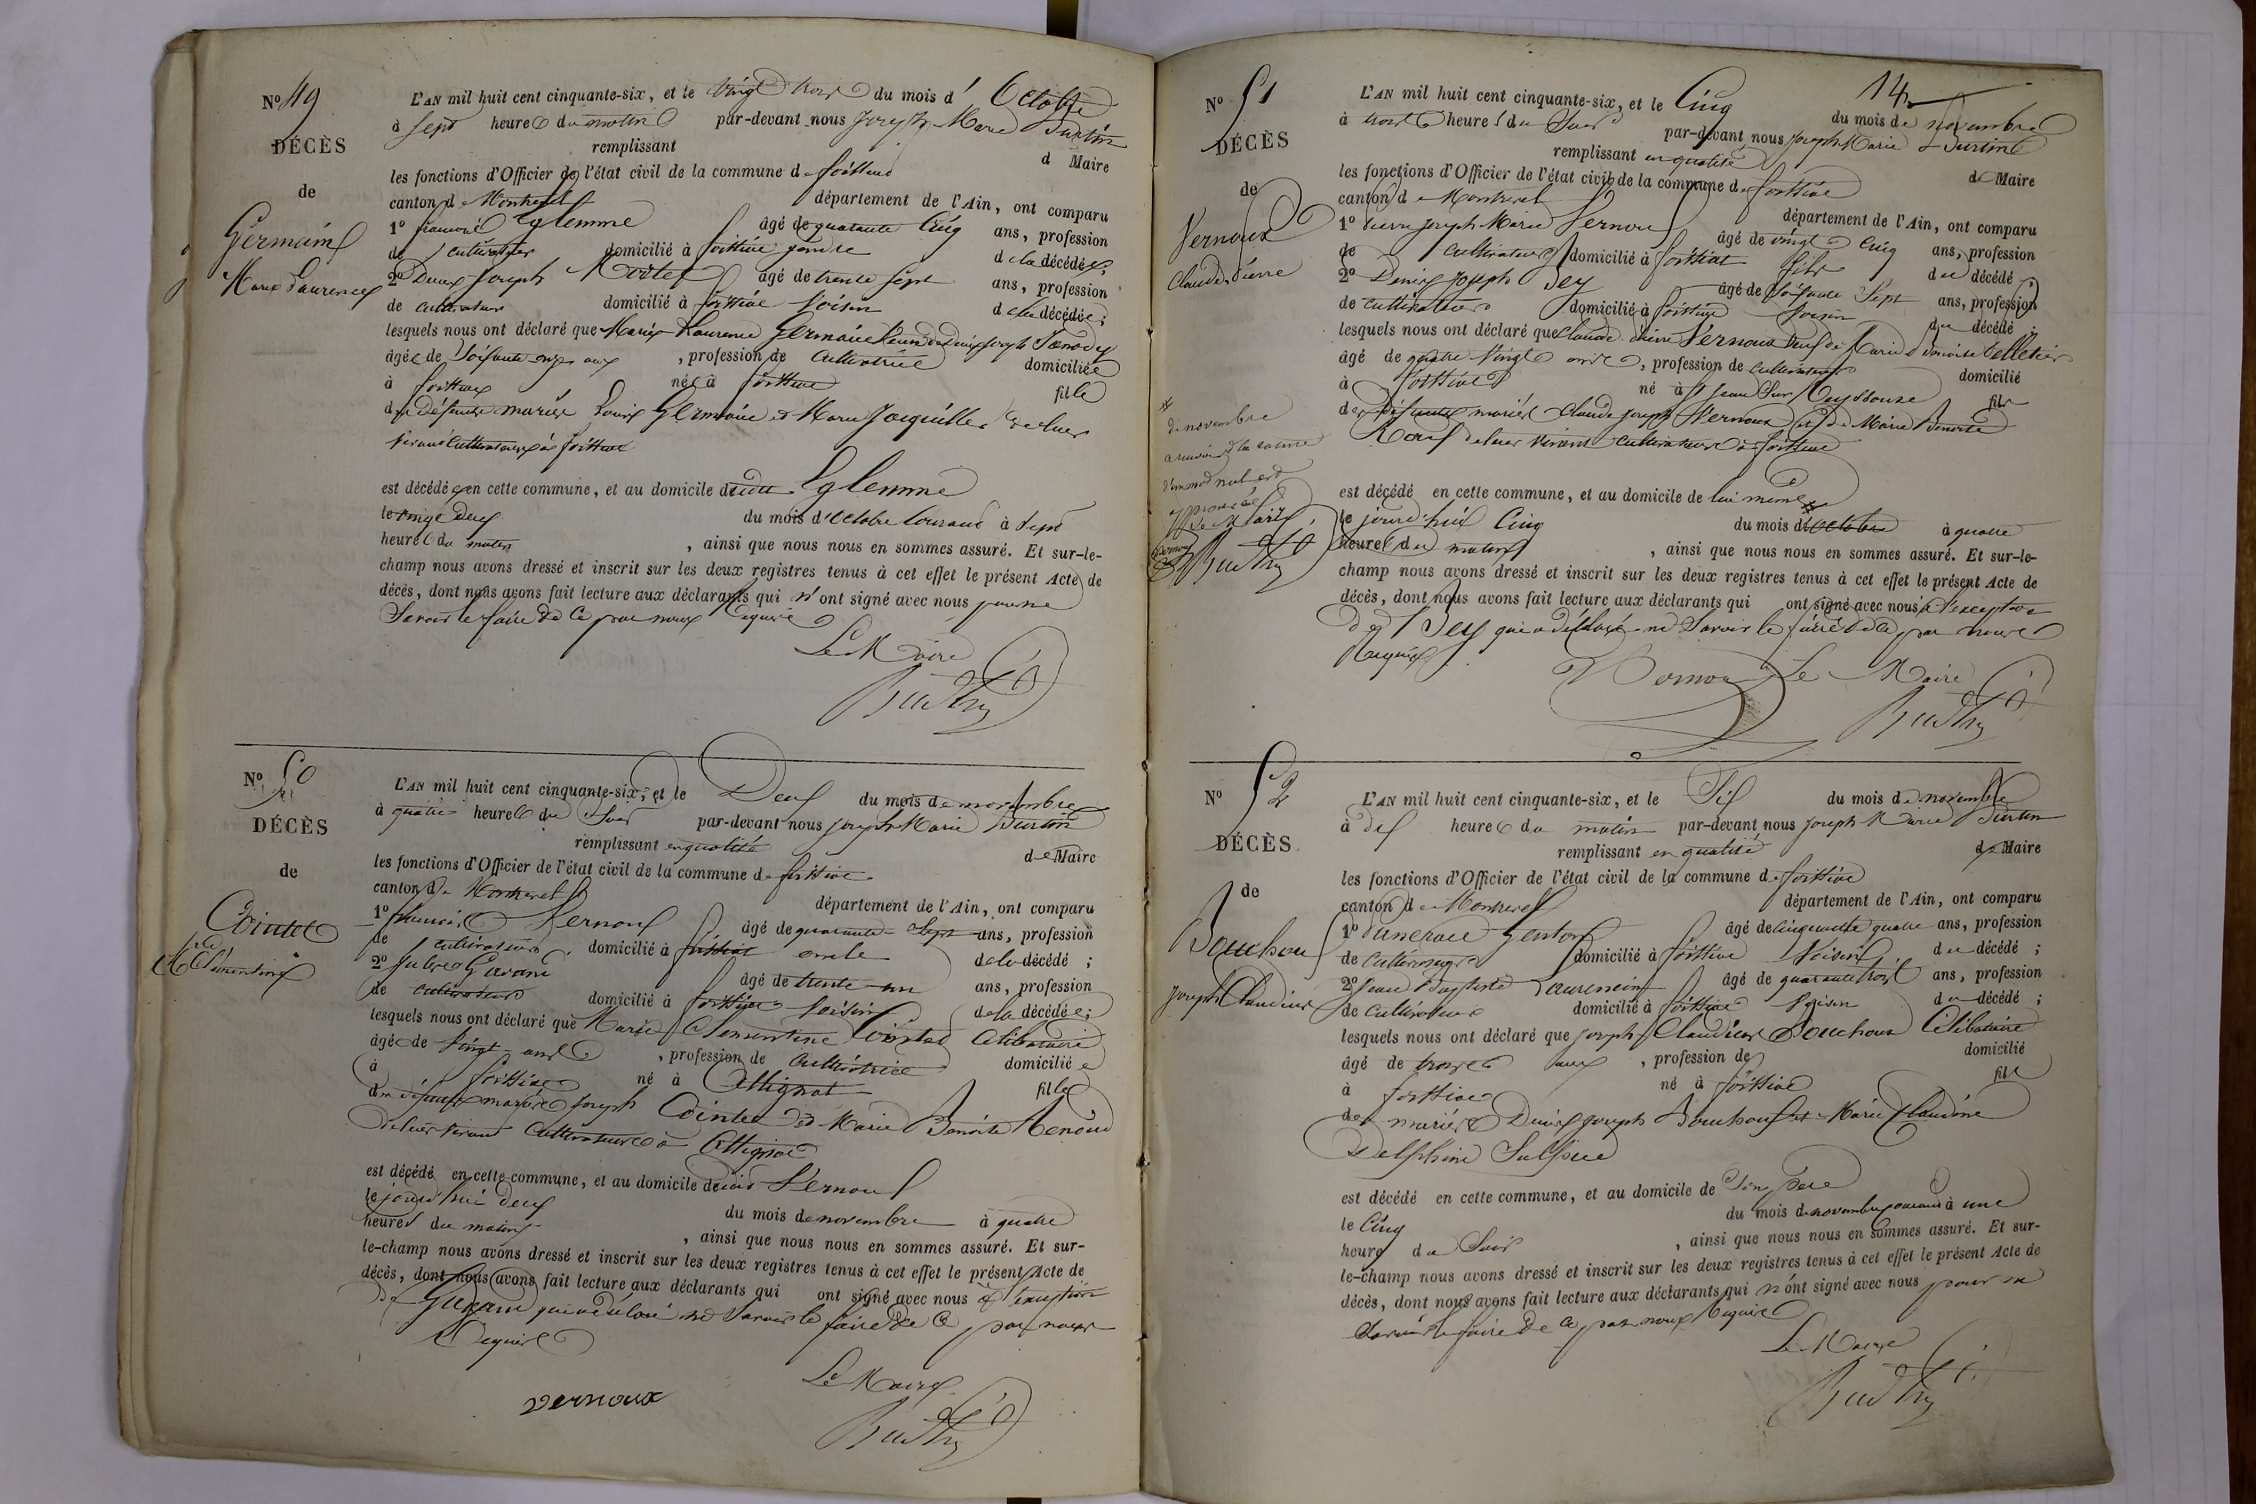 N° 49
DÉCÈS
de
Germain
Marie Laurence
L'AN mil huit cent cinquante-six, et le vingt trois du mois d' Octobre
à sept heures du matin par-devant nous Joseph Marie Burtin
remplissant d Maire
les fonctions d'Officier de l'état civil de la commune de foissiat
canton de Montrevel département de l'Ain, ont comparu
1° âgé de quarante cinq ans, profession
de cultivateur domicilié à foissiat gendre de la décédée;
2° Denis Joseph âgé de trente sept ans, profession
de cultivateur domicilié à foissiat voisin de la décédée;
lesquels nous ont déclaré que Marie Laurence Germain veuve de Denis Joseph
âgée de soixante onze ans, profession de cultivatrice domiciliée
à foissiat née à foissiat fille
de défunts mariés Louis Germain et Marie de leur
vivant cultivateurs à foissiat
est décédée en cette commune, et au domicile dudit
le vingt deux du mois d'octobre courant à sept
heures du matin, ainsi que nous nous en sommes assuré. Et sur-le-
champ nous avons dressé et inscrit sur les deux registres tenus à cet effet le présent Acte de
décès, dont nous avons fait lecture aux déclarants qui n'ont signé avec nous pour ne
savoir le faire de ce par nous requis
Le Maire
Burtin
N° 50
DÉCÈS
de
Cointet
Mie Clémentine
L'AN mil huit cent cinquante-six, et le Deux du mois de novembre
à quatre heures du soir par-devant nous Joseph Marie Burtin
remplissant en qualité de Maire
les fonctions d'Officier de l'état civil de la commune de foissiat
canton de Montrevel département de l'Ain, ont comparu
1° françois Vernoux âgé de quarante sept ans, profession
de cultivateur domicilié à foissiat oncle de la décédé;
2° âgé de trente un ans, profession
de cultivateur domicilié à foissiat voisin de la décédée;
lesquels nous ont déclaré que Marie Clémentine Cointet célibataire
âgée de vingt ans, profession de cultivatrice domiciliée
à foissiat né à Attignat fille
de défunts mariés Joseph Cointet et Marie Benoite Renoud
de leur vivant cultivateurs à Attignat
est décédé en cette commune, et au domicile dudit Vernoux
le jourd'hui deux du mois de novembre à quatre
heures du matin, ainsi que nous nous en sommes assuré. Et sur-
le-champ nous avons dressé et inscrit sur les deux registres tenus à cet effet le présent Acte de
décès, dont nous avons fait lecture aux déclarants qui ont signé avec nous à l'exception
de qui a déclaré ne savoir le faire de ce par nous
requis
Le Maire
vernoux
Burtin
14
N° 51
DÉCÈS
de
Vernoux
Claude Pierre
L'AN mil huit cent cinquante-six, et le Cinq du mois de novembre
à trois heures du soir par-devant nous Joseph Marie Burtin
remplissant en qualité de Maire
les fonctions d'Officier de l'état civil de la commune de foissiat
canton de Montrevel département de l'Ain, ont comparu
1° Pierre Joseph Marie Vernoux âgé de vingt cinq ans, profession
de cultivateur domicilié à foissiat fils du décédé
2° Denis Joseph Dey âgé de soixante sept ans, profession
de cultivateur domicilié à foissiat voisin du décédé;
lesquels nous ont déclaré que Claude Pierre Vernoux veuf de Marie Denoite Pelletier
âgé de quatre vingt, profession de cultivateur domicilié
à foissiat né à St Jean sur Reyssouze fils
de défunts mariés Claude Joseph Vernoux et de Marie Benoite
de leur vivant cultivateurs à foissiat
est décédé en cette commune, et au domicile de lui même
le jourd'hui cinq du mois d'octobre à quatre
heures du matin, ainsi que nous nous en sommes assuré. Et sur-le-
champ nous avons dressé et inscrit sur les deux registres tenus à cet effet le présent Acte de
décès, dont nous avons fait lecture aux déclarants qui ont signé avec nous à l'exception
de Dey qui a déclaré ne savoir le faire de ce par nous
requis
de novembre
a la rature
d'un mot nul est
approuvée
Le Maire
Burtin
Vernoux Le Maire
Burtin
N° 52
DÉCÈS
de
Bouchoux
Joseph Claudius
L'AN mil huit cent cinquante-six, et le Six du mois de novembre
à dix heures du matin par-devant nous Joseph Marie Burtin
remplissant en qualité de Maire
les fonctions d'Officier de l'état civil de la commune de foissiat
canton de Montrevel département de l'Ain, ont comparu
1° âgé de cinquante quatre ans, profession
de cultivateur domicilié à foissiat voisin du décédé;
2° Jean Baptiste Laurencin âgé de quarante trois ans, profession
de cultivateur domicilié à foissiat voisin du décédé;
lesquels nous ont déclaré que Joseph Claudius Bouchoux célibataire
âgé de ans, profession de domicilié
à foissiat né à foissiat fils
de mariés Denis Joseph Bouchoux et Marie Claudine
Delphine Sulpice
est décédé en cette commune, et au domicile de son père
le cinq du mois de novembre courant à une
heure du soir, ainsi que nous nous en sommes assuré. Et sur-
le-champ nous avons dressé et inscrit sur les deux registres tenus à cet effet le présent Acte de
décès, dont nous avons fait lecture aux déclarants qui n'ont signé avec nous pour ne
savoir le faire de ce par nous requis
Le Maire
Burtin